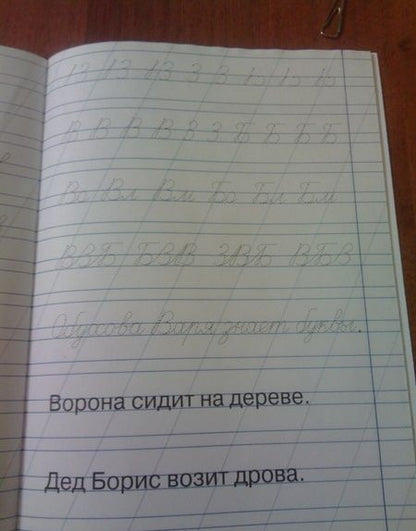 В В В В В З Б Б Б Б
Во Вл Вм Бо Бл Бм
ВЗБ БВВ ЗВБ ВБВ
Варя знает буквы.
Ворона сидит на дереве.
Дед Борис возит дрова.